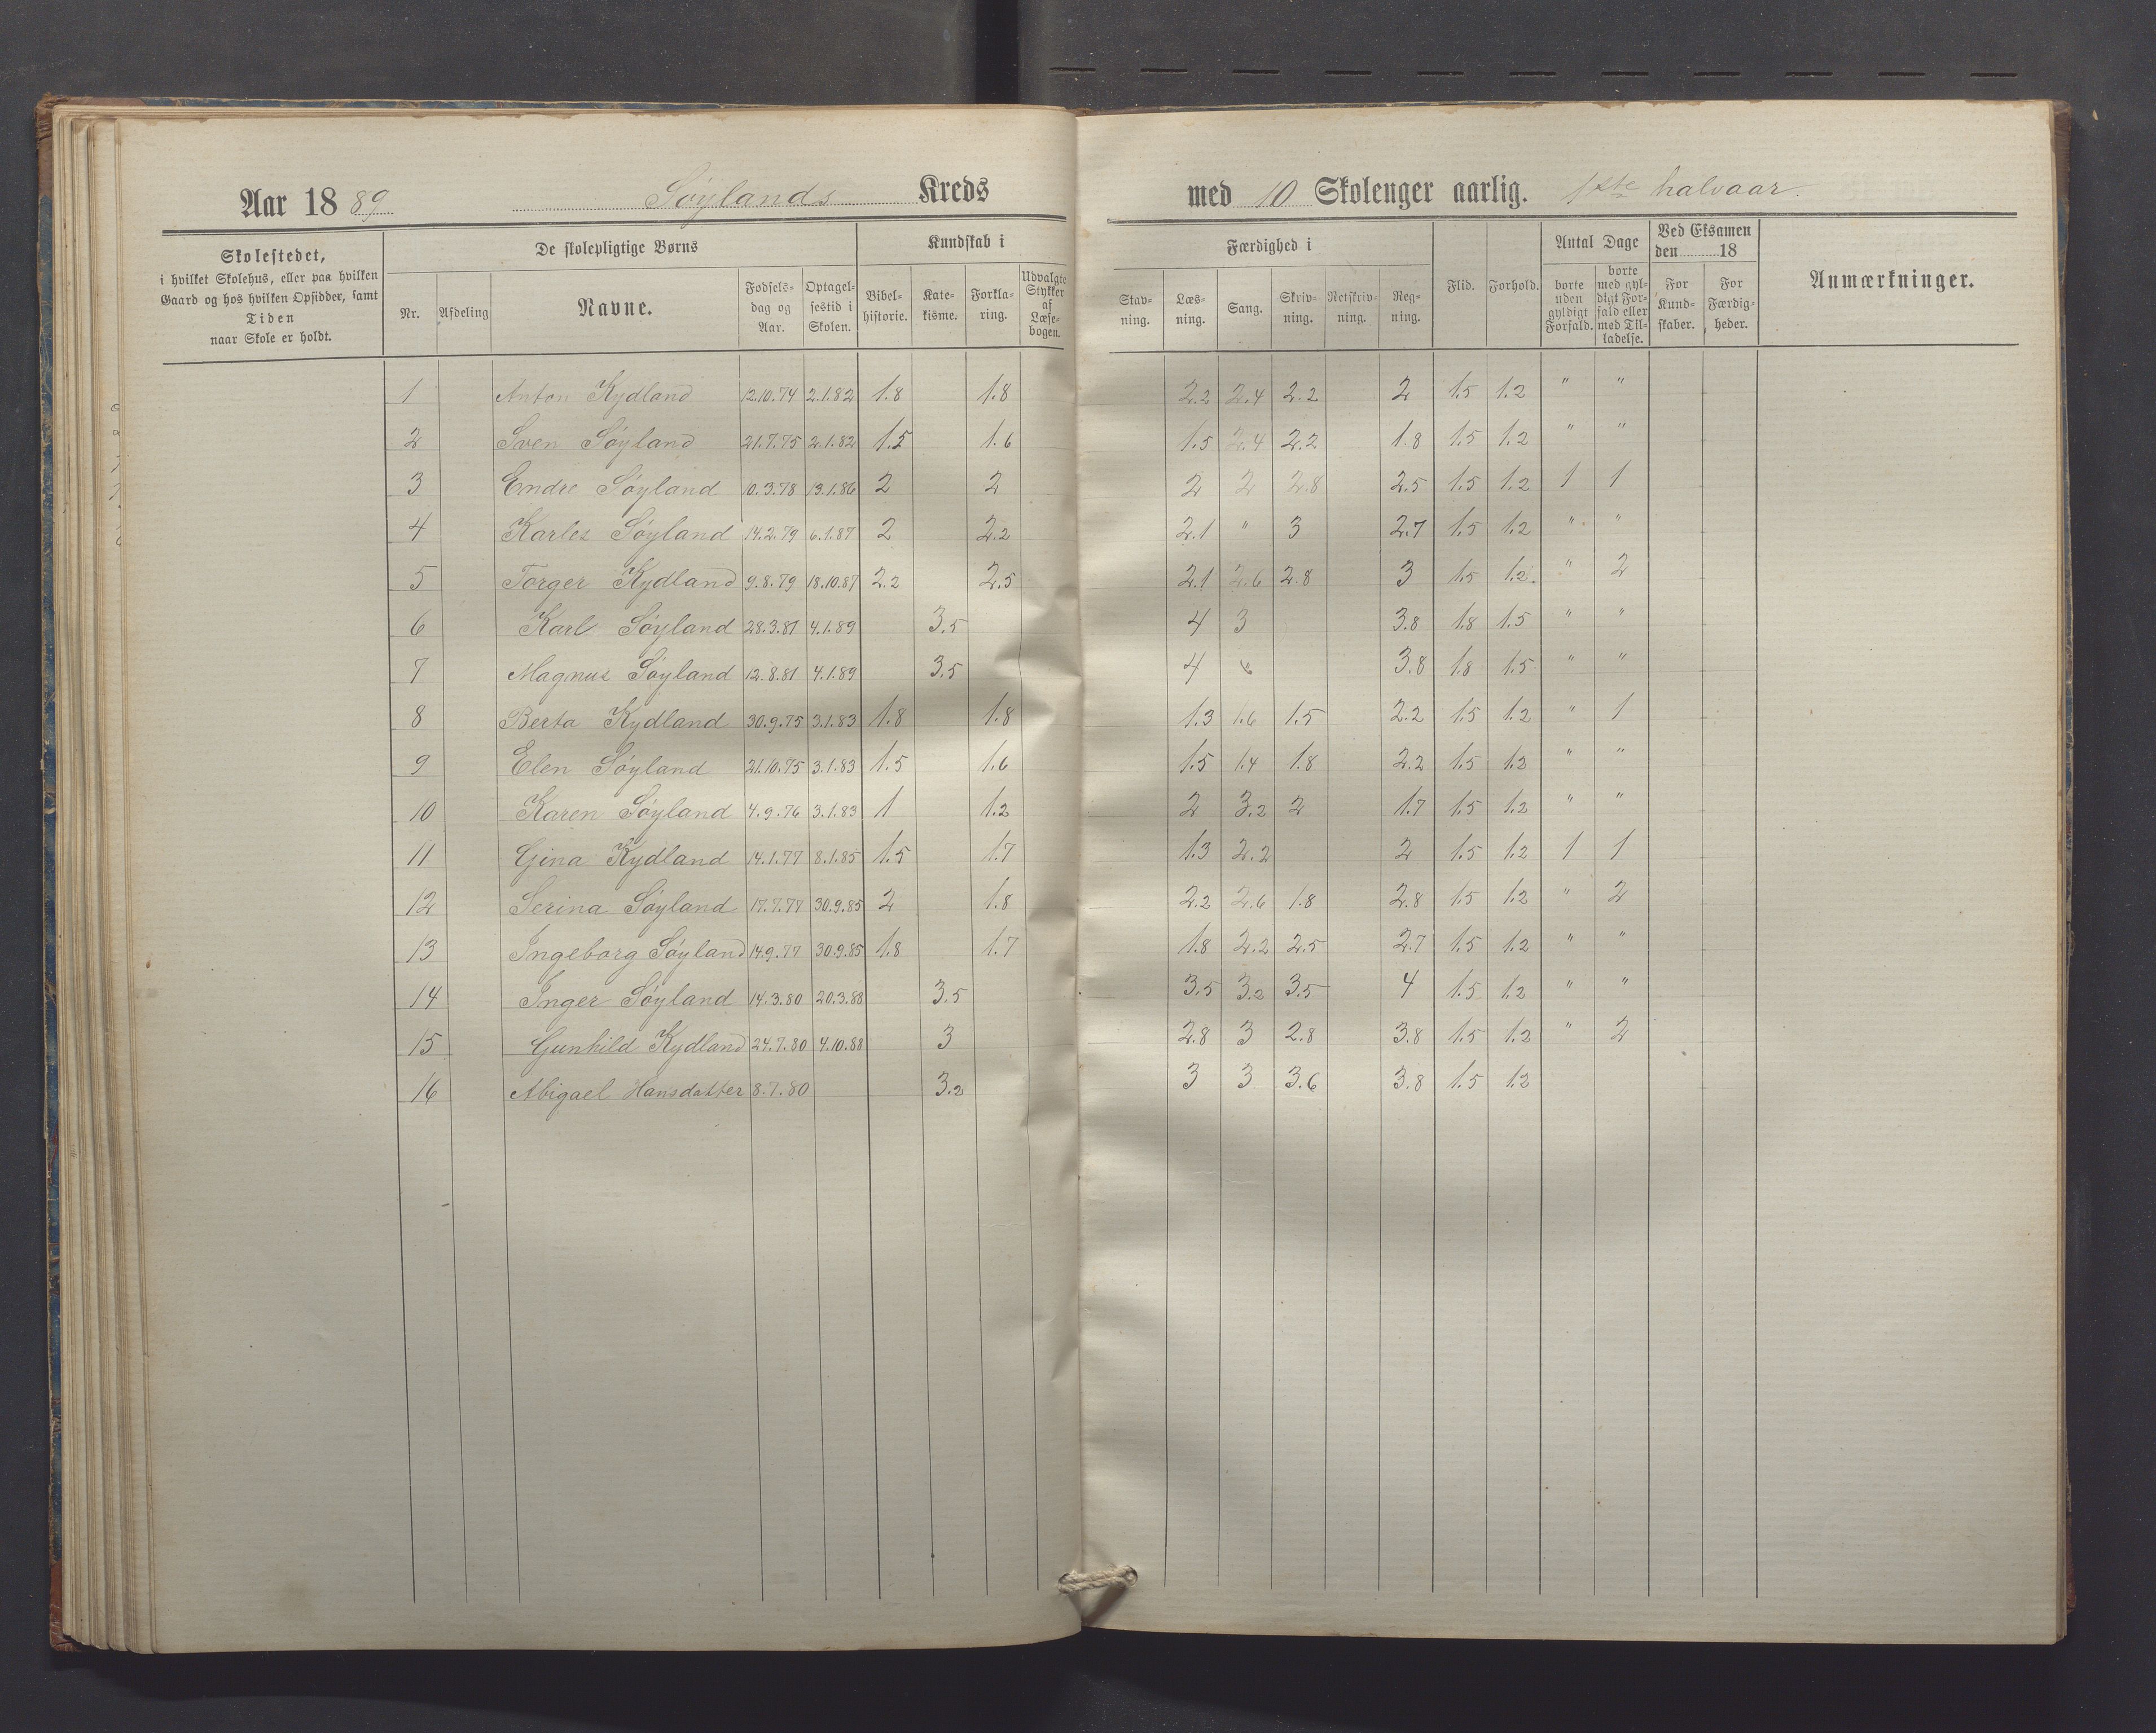 Aar 1889 Søylands Kreds med 10 Skolenger aarlig. 1ste halvaar.
Skolestedet,
i hvilket Skolehus, eller paa hvilken
Gaard og hos hvilken Opsidder, samt
Tiden
naar Skole er holdt.
De skolepligtige Børns
Nr.
Afdeling
Navne.
Fødsels-
dag og
Aar.
Optagel-
sestid i
Skolen.
Kundskab i
Bibel-
historie.
Kate-
kisme.
Forkla-
ring.
Udvalgte
Stykker
af
Læse-
bogen.
Færdighed i
Stav-
ning.
Læs-
ning.
Sang.
Skriv-
ning.
Retskriv-
ning.
Reg-
ning.
Flid.
Forhold.
Antal Dage
borte
uden
gyldigt
Forfald.
borte
med gyl-
digt For-
fald eller
med Til-
ladelse.
Ved Eksamen
den 18
For
Kund-
skaber.
For
Færdig-
heder.
Anmærkninger.
1 Anton Kydland 12.10.74 2.1.82 1.8 1.8 2.2 2.4 2.2 2 1.5 1.2 " "
2 Sven Søyland 21.7.75 2.1.82 1.5 1.6 1.5 2.4 2.2 1.8 1.5 1.2 " "
3 Endre Søyland 10.3.78 13.1.86 2 2 2 2 2.8 2.5 1.5 1.2 1 1
4 Karles Søyland 14.2.79 6.1.87 2 2.2 2.1 " 3 2.7 1.5 1.2 " "
5 Torger Kydland 9.8.79 18.10.87 2.2 2.5 2.1 2.6 2.8 3 1.5 1.2 " 2
6 Karl Søyland 28.3.81 4.1.89 3.5 4 3 3.8 1.8 1.5 " "
7 Magnus Søyland 12.8.81 4.1.89 3.5 4 3.8 1.8 1.5 " "
8 Berta Kydland 30.9.75 3.1.83 1.8 1.8 1.3 1.6 1.5 2.2 1.5 1.2 " 1
9 Elen Søyland 21.10.75 3.1.83 1.5 1.6 1.5 1.4 1.8 2.2 1.5 1.2 " "
10 Karen Søyland 4.9.76 3.1.83 1 1.2 2 3.2 2 1.7 1.5 1.2 " "
11 Gina Kydland 14.1.77 8.1.85 1.5 1.7 1.3 2.2 2 1.5 1.2 1 1
12 Serina Søyland 17.7.77 30.9.85 2 1.8 2.2 2.6 1.8 2.8 1.5 1.2 " 2
13 Ingeborg Søyland 14.9.77 30.9.85 1.8 1.7 1.8 2.2 2.5 2.7 1.5 1.2 " "
14 Inger Søyland 14.3.80 20.3.88 3.5 3.5 3.2 3.5 4 1.5 1.2 " "
15 Gunhild Kydland 24.7.80 4.10.88 3 2.8 3 2.8 3.8 1.5 1.2 " 2
16 Abigael Hansdatter 8.7.80 3.2 3 3 3.6 3.8 1.5 1.2